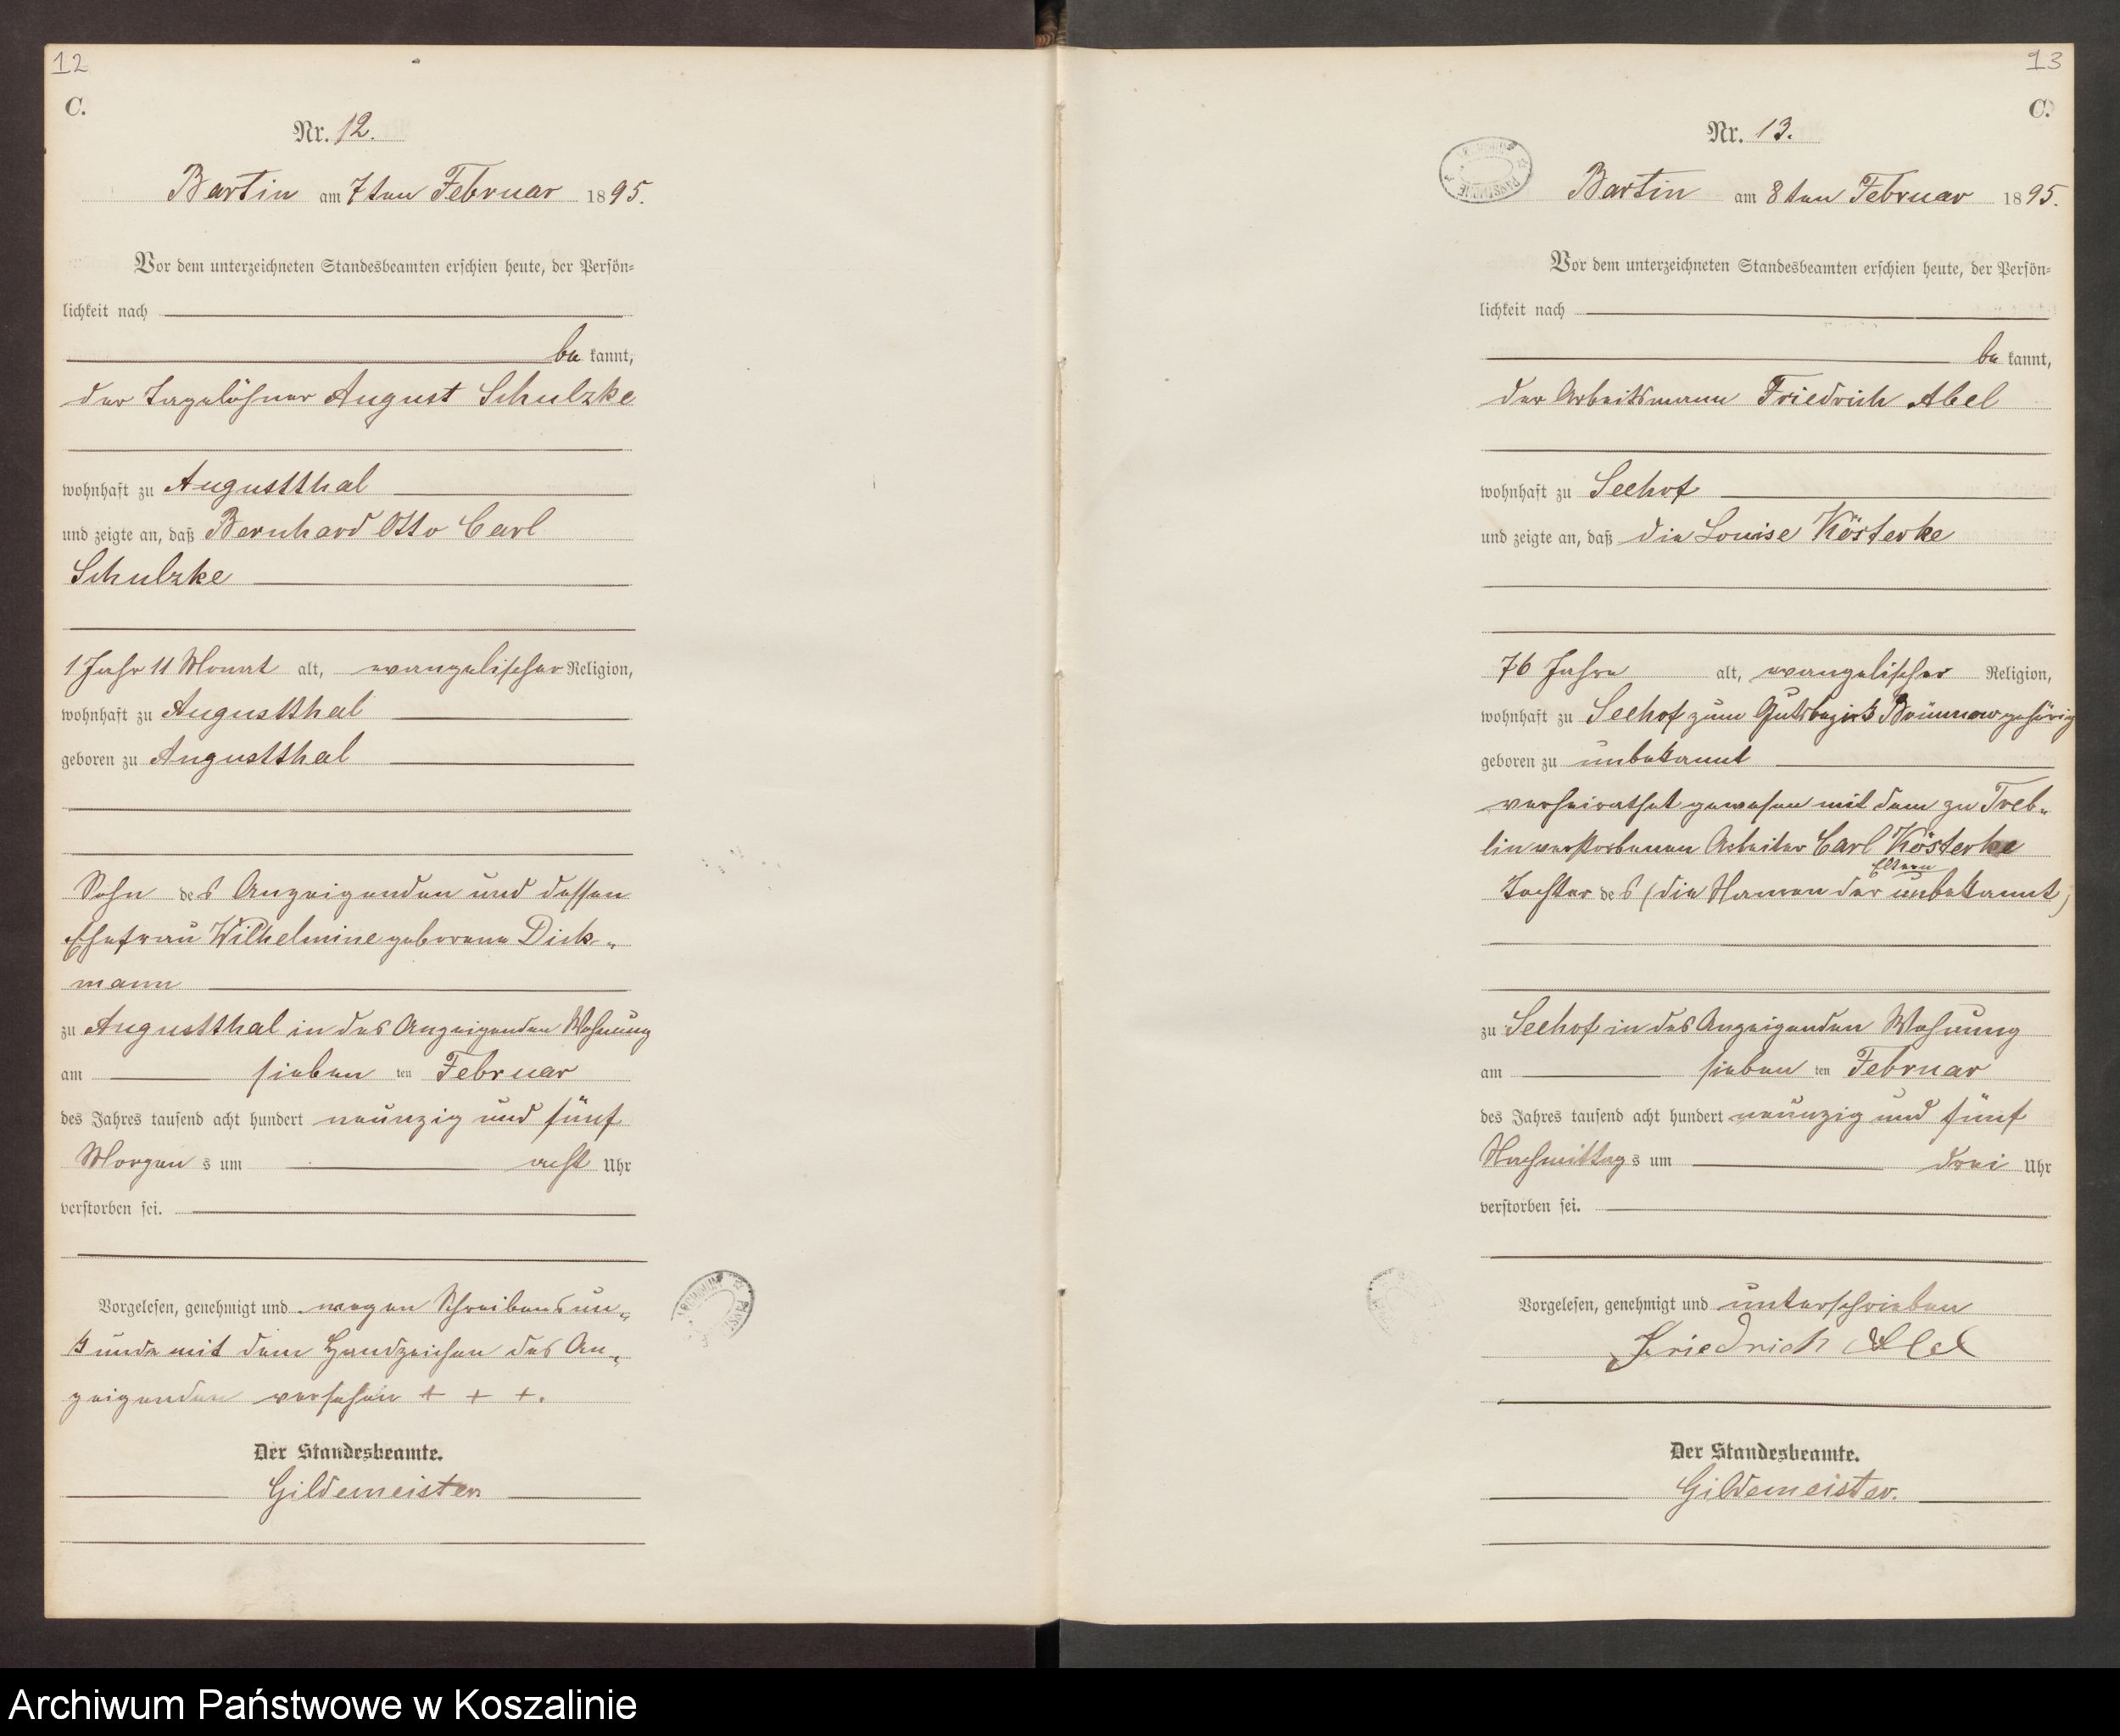 12
C.
Nr. 12.
Bartin am 7ten Februar 1895.
Vor dem unterzeichneten Standesbeamten erschien heute, der Persön=
lichkeit nach
be kannt,
der Tagelöhner August Schulzke
wohnhaft zu Augustthal
und zeigte an, daß Bernhard Otto Carl
Schulzke
1 Jahr 11 Monat alt, evangelischer Religion,
wohnhaft zu Augustthal
geboren zu Augustthal
Sohn des Anzeigenden und dessen
Ehefrau Wilhelmine geborene Dick-
mann
zu Augustthal in des Anzeigenden Wohnung
am sieben ten Februar
des Jahres tausend acht hundert neunzig und fünf
Morgen s um acht Uhr
verstorben sei.
Vorgelesen, genehmigt und wegen Schreibensun-
kunde mit dem Handzeichen des An-
zeigenden versehen + + +.
Der Standesbeamte.
Gildemeister
13
C.
Nr. 13.
Bartin am 8ten Februar 1895.
Vor dem unterzeichneten Standesbeamten erschien heute, der Persön=
lichkeit nach
be kannt,
der Arbeitsmann Friedrich Abel
wohnhaft zu Seehof
und zeigte an, daß die Louise Kösterke
76 Jahre alt, evangelischer Religion,
wohnhaft zu Seehof zum Gutsbezirk Brünnow gehörig
geboren zu unbekannt
verheirathet gewesen mit dem zu Treb-
lin verstorbenen Arbeiter Carl Kösterke
Tochter des (die Namen der Eltern unbekannt)
zu Seehof in des Anzeigenden Wohnung
am sieben ten Februar
des Jahres tausend acht hundert neunzig und fünf
Nachmittag s um drei Uhr
verstorben sei.
Vorgelesen, genehmigt und unterschrieben
Friedrich Abel
Der Standesbeamte.
Gildemeister.
Archiwum Państwowe w Koszalinie